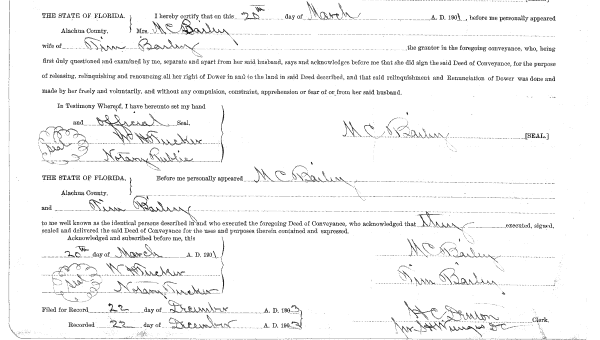 THE STATE OF FLORIDA. I hereby certify that on this 20th day of March A. D. 1901, before me personally appeared
Alachua County. Mrs. M C Bailey
wife of Tim Bailey the grantor in the foregoing conveyance, who, being
first duly questioned and examined by me, separate and apart from her said husband, says and acknowledges before me that she did sign the said Deed of Conveyance, for the purpose
of releasing, relinquishing and renouncing all her right of Dower in and to the land in said Deed described, and that said relinquishment and Renunciation of Dower was done and
made by her freely and voluntarily, and without any compulsion, constraint, apprehension or fear of or from her said husband.
In Testimony Whereof, I have hereunto set my hand
and official Seal.
Seal W H Tucker M C Bailey [SEAL.]
Notary Public
THE STATE OF FLORIDA. Before me personally appeared M C Bailey
Alachua County.
and Tim Bailey
to me well known as the identical persons described in and who executed the foregoing Deed of Conveyance, who acknowledged that they executed, signed,
sealed and delivered the said Deed of Conveyance for the uses and purposes therein contained and expressed.
Acknowledged and subscribed before me, this
20th day of March A. D. 1901 M C Bailey
Seal W H Tucker Tim Bailey
Notary Tucker
Filed for Record 22 day of December A. D. 1903 H C Denton Clerk.
Recorded 22 day of December A. D. 190 D C